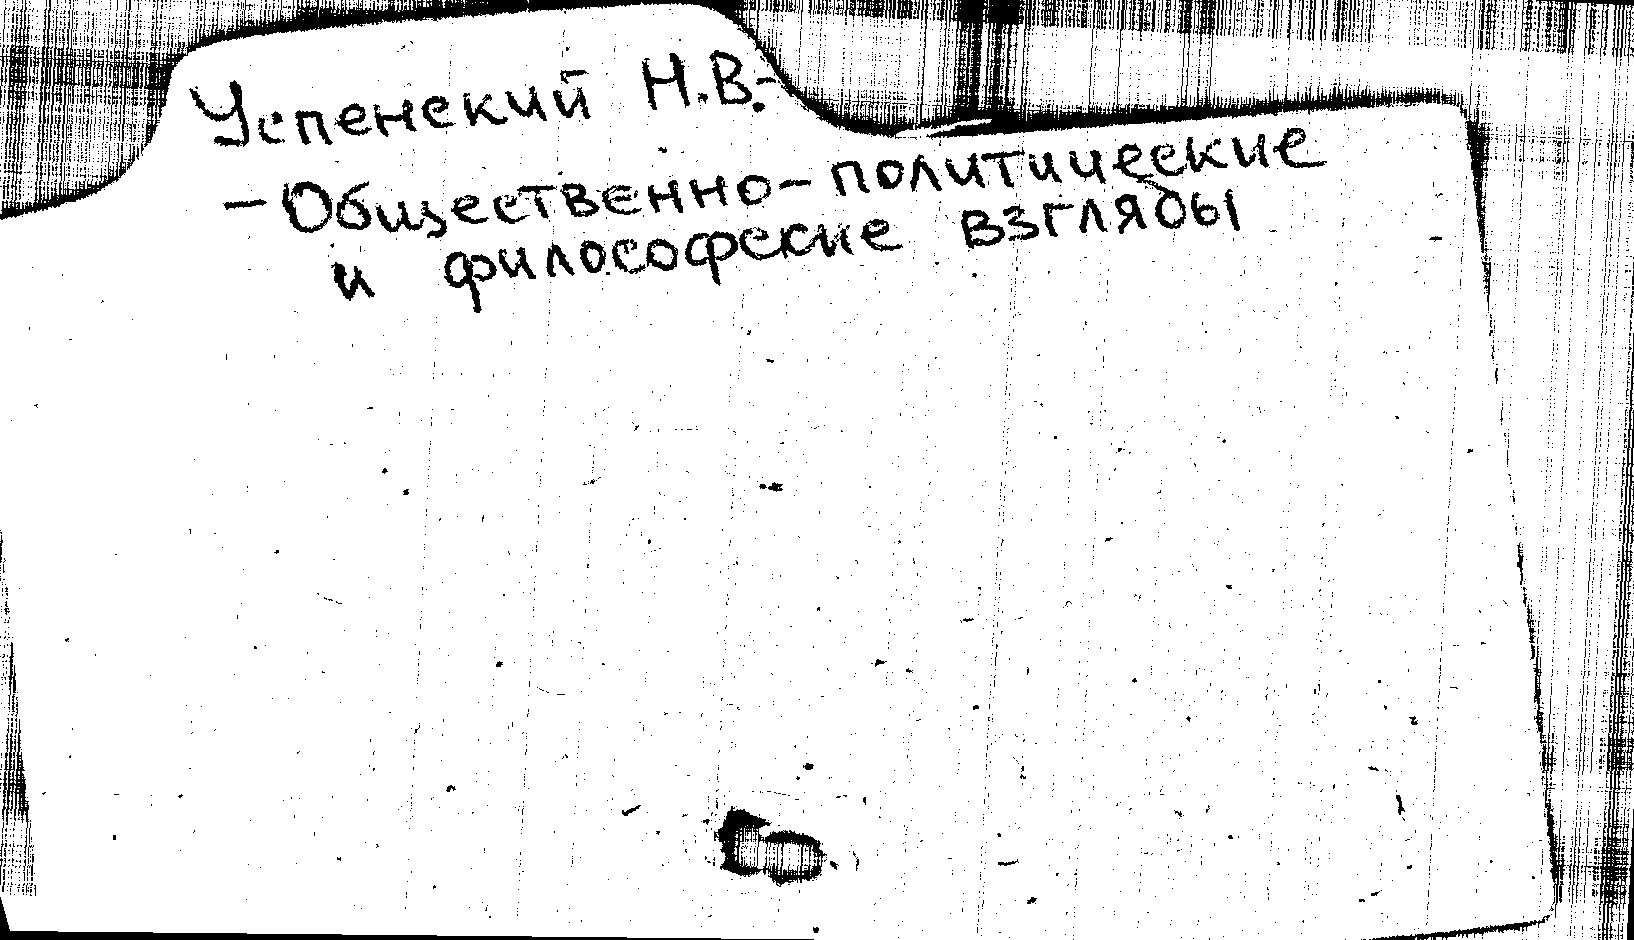 Успенский Н.В.-
- Общественно-политические
и философские взгляды